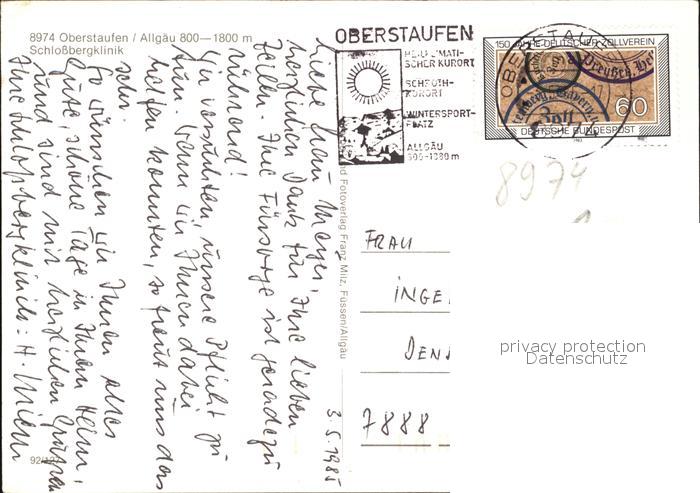 8974 Oberstaufen / Allgäu 800—1800 m
Schloßbergklinik
OBERSTAUFEN
HEILKLIMATI-
SCHER KURORT
SCHROTH-
KURORT
WINTERSPORT-
PLATZ
ALLGÄU
800-1800 m
150 JAHRE DEUTSCHER ZOLLVEREIN
Preußen
Zoll
60
DEUTSCHE BUNDESPOST
8974
3.5.1985
Liebe Frau Mayer,
herzlichen Dank für Ihre lieben
Zeilen. Ihre Fürsorge ist geradezu
rührend!
Wir versuchten, unsere Pflicht zu
tun. Wenn wir Ihnen dabei
helfen konnten, so freut uns das
sehr.
So wünschen wir Ihnen alles
Gute, schöne Tage in Ihrem Heim,
und sind mit herzlichen Grüßen
Ihre Schloßbergklinik: H.
Fotoverlag Franz Milz, Füssen/Allgäu
FRAU
INGE
7888
privacy protection
Datenschutz
92/